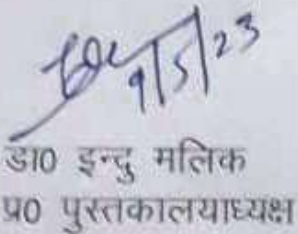 9/5/23
डा0 इन्दु मलिक
प्र0 पुस्तकालयाध्यक्ष